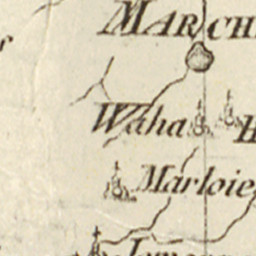 MARCH
Waha H
Marloie